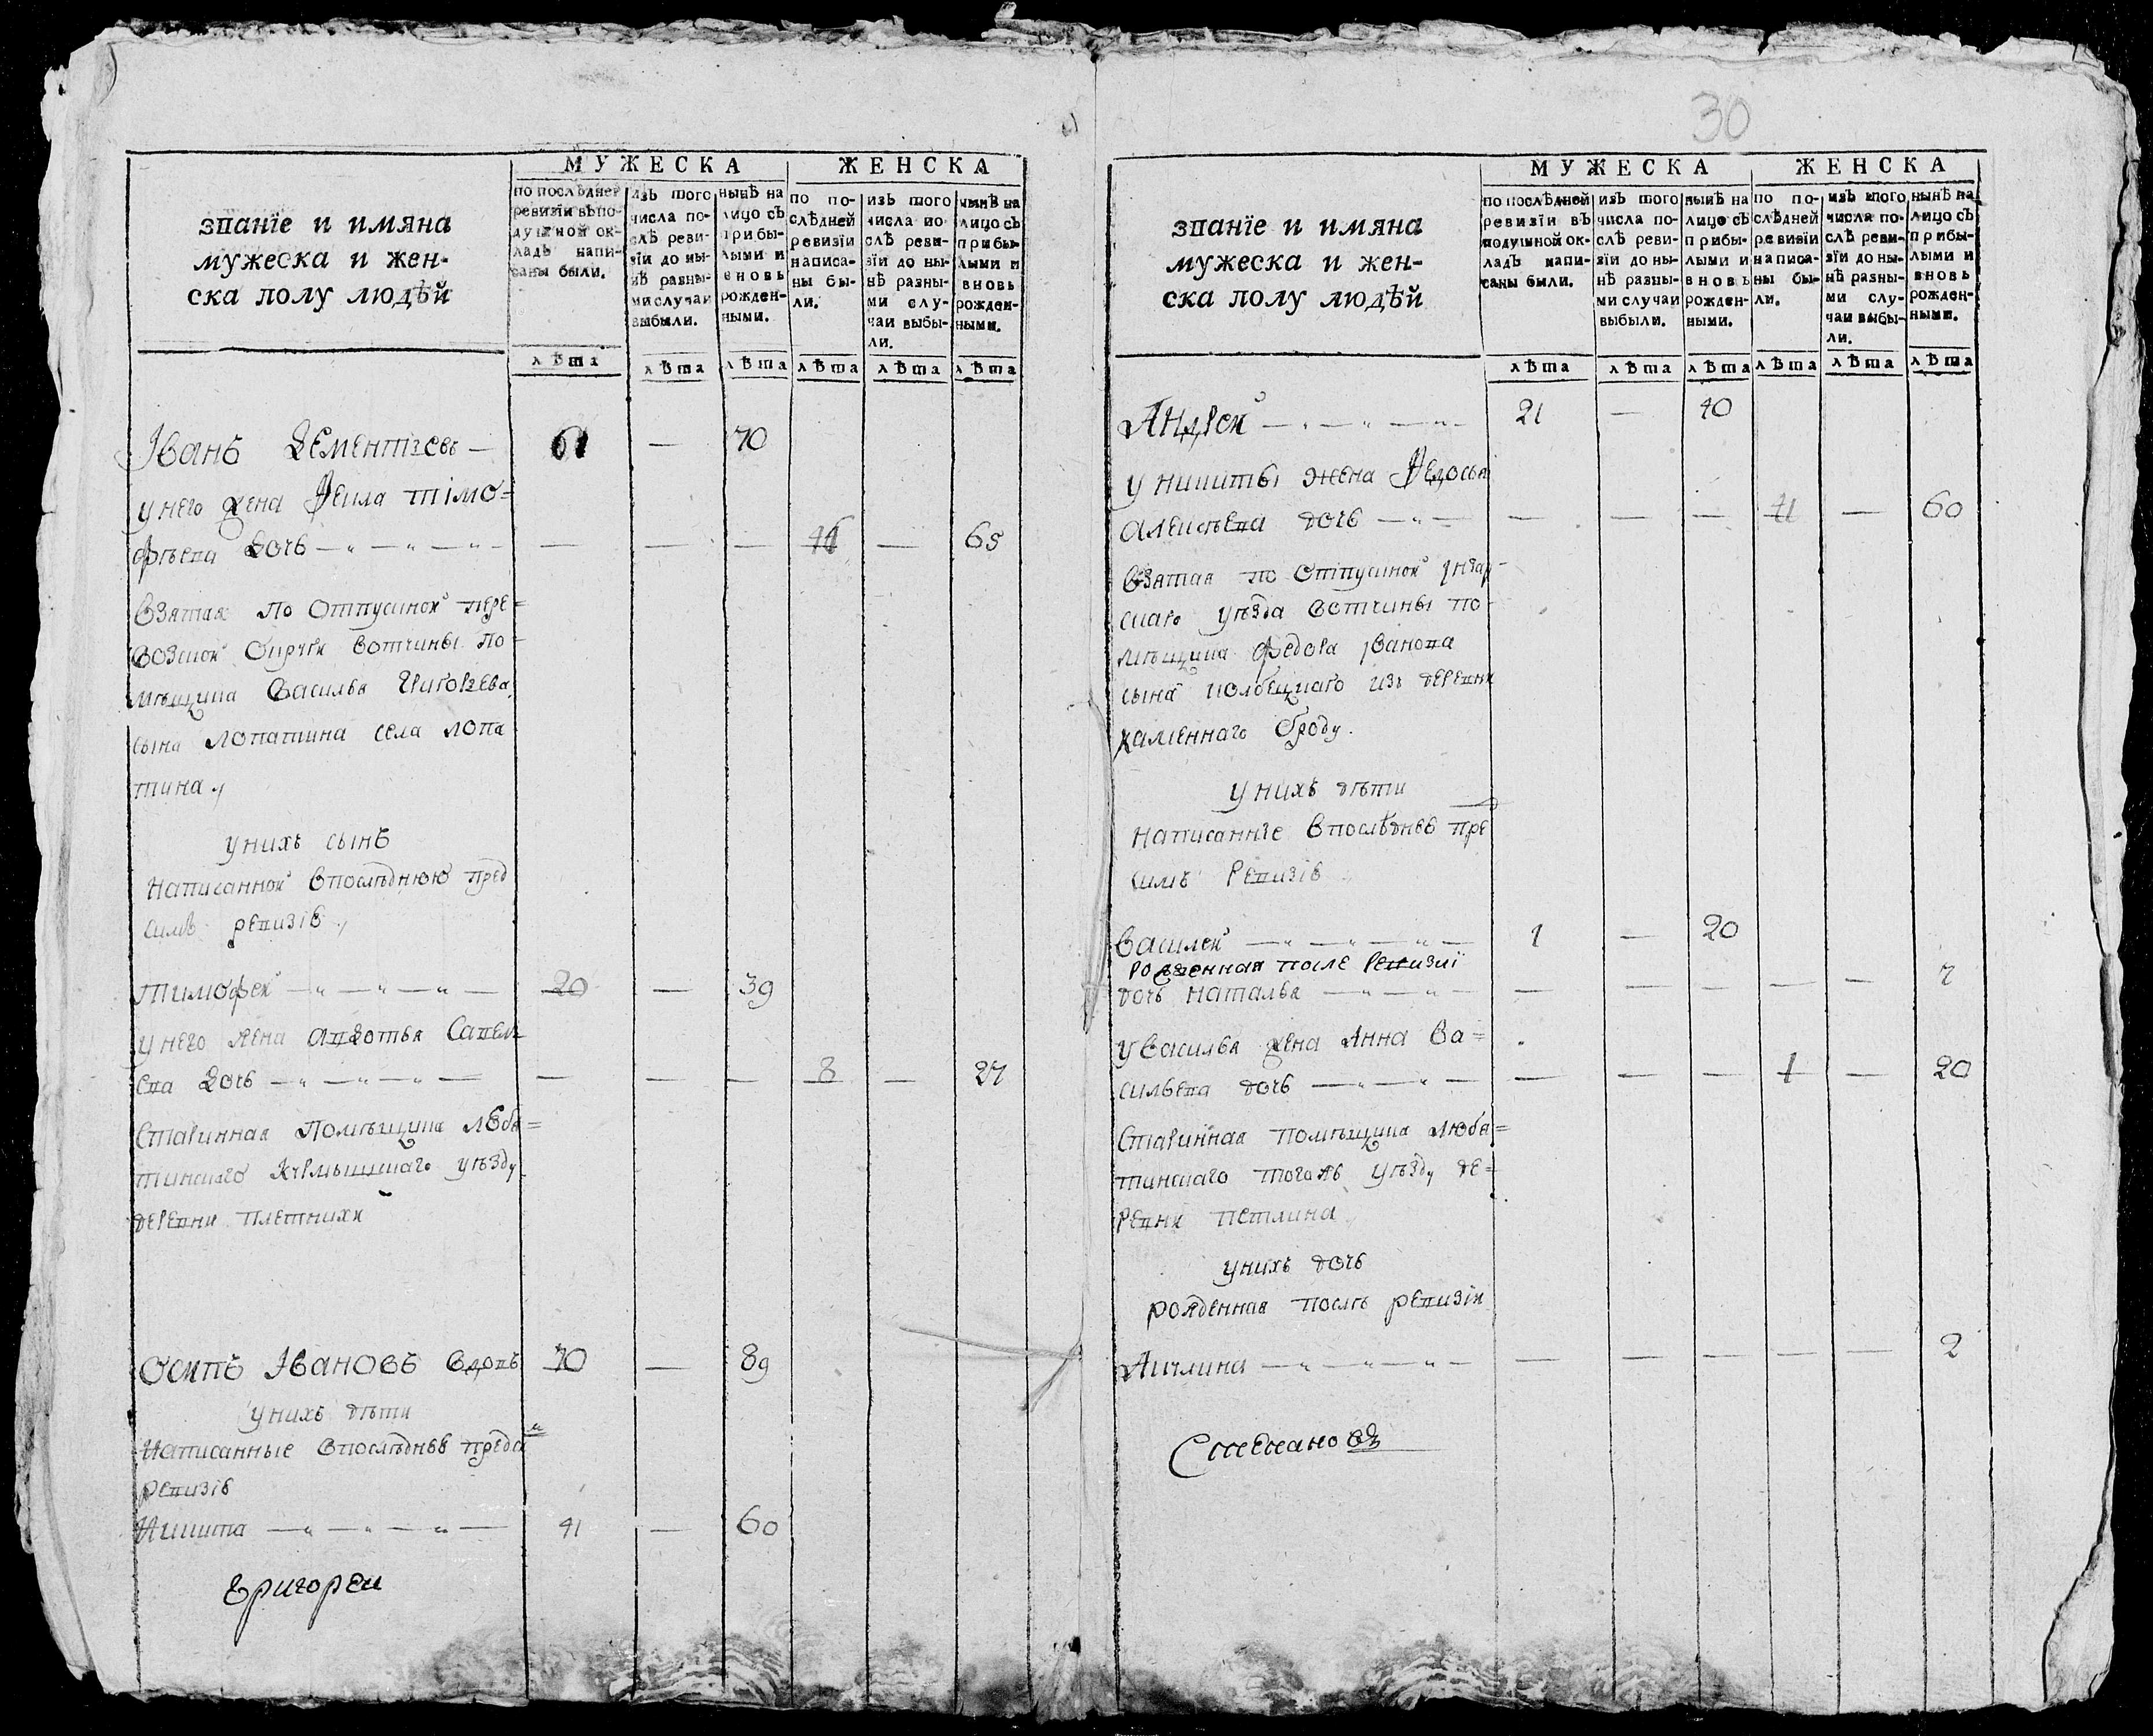 30
МУЖЕСКА ЖЕНСКА
званїе и имяна
мужеска и жен-
ска полу людѣй
по послѣдней
ревизїи въ по-
душной ок-
ладъ напи-
саны были.
изъ того
числа по-
слѣ реви-
зїи до ны-
нѣ разны-
ми случаи
выбыли.
нынѣ на
лицо съ
прибы-
лыми и
вновь
рожден-
ными.
по по-
слѣдней
ревизїи
написа-
ны бы-
ли.
изъ того
числа по-
слѣ реви-
зїи до ны-
нѣ разны-
ми слу-
чаи выбы-
ли.
нынѣ на
лицо съ
прибы-
лыми и
вновь
рожден-
ными.
лѣта лѣта лѣта лѣта лѣта лѣта
Иванъ Дементіевъ — 61 — 70
у него жена Фекла тімо=
фѣева дочь — — — — 46 — 65
взятая по отпускной пере=
возской округи вотчины по=
мѣщика Василья Григорьева
сына Лопатина села лопа
тина
у нихъ сынъ
написанной впослѣднюю пред
симъ ревизіе
тимофей — 20 — 39
у него жена авдотья Савель
ева дочь — — — — 8 — 27
старинная помѣщика люба=
тинскаго Курмышскаго уѣзду
деревни плетнихи
Осипъ Ивановъ вдовъ 70 — 89
у нихъ дѣти
написанные впослѣднее предъ
ревизіе
Никита — 41 — 60
Григореи
МУЖЕСКА ЖЕНСКА
званїе и имяна
мужеска и жен-
ска полу людѣй
по послѣдней
ревизїи въ
подушной ок-
ладъ напи-
саны были.
изъ того
числа по-
слѣ реви-
зїи до ны-
нѣ разны-
ми случаи
выбыли.
нынѣ на
лицо съ
прибы-
лыми и
вновь
рожден-
ными.
по по-
слѣдней
ревизїи
написа-
ны бы-
ли.
изъ того
числа по-
слѣ реви-
зїи до ны-
нѣ разны-
ми слу-
чаи выбы-
ли.
нынѣ на
лицо съ
прибы-
лыми и
вновь
рожден-
ными.
лѣта лѣта лѣта лѣта лѣта лѣта
Андреи — 21 — 40
у никиты жена Федосья
алексѣева дочь — — — — 41 — 60
взятая по отпускной
скаго уѣзда вотчины по-
мѣщика федора Иванова
сына из деревни
каменнаго броду.
у нихъ дѣти
написанніе впослѣднее пре
симъ ревизіе
василеи — 1 — 20
рожденная после ревизиї
дочь наталья — — — — — — 7
у василья жена Анна ва=
сильева дочь — — — — 1 — 20
старинная помѣщика люба=
тинскаго тогожъ уѣзду де=
ревни петлина
у нихъ дочь
рожденная послѣ ревизіи
Акилина — — — — — — 2
Степановъ